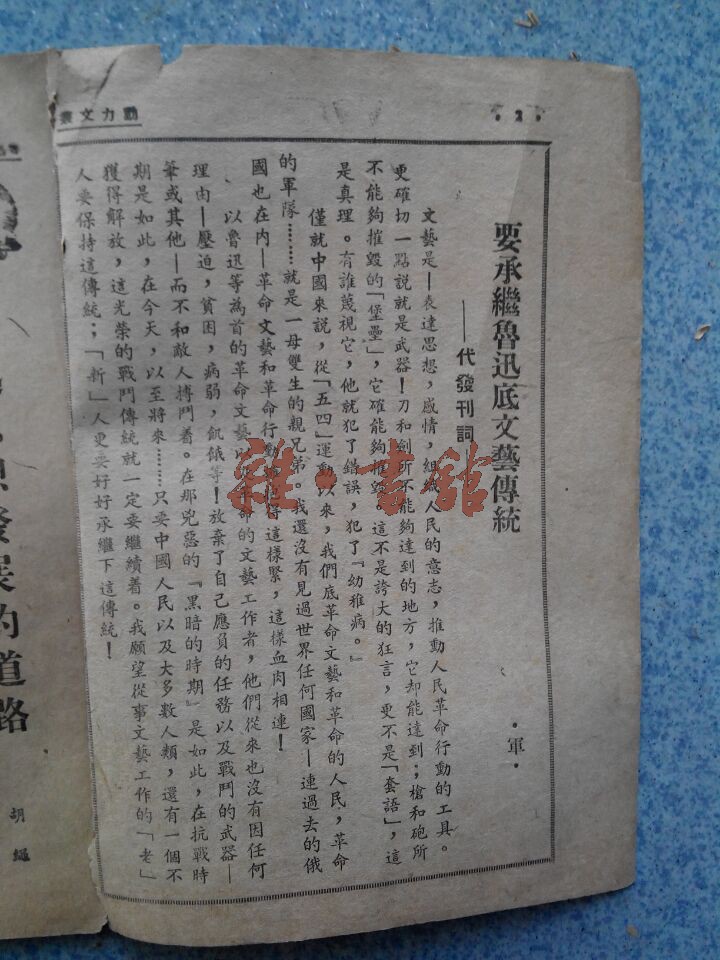 動力文
·2·
要承繼魯迅底文藝傳統
——代發刊詞
·軍·
文藝是—表達思想,感情,組織人民的意志,推動人民革命行動的工具。
更確切一點説就是武器!刀和劍所不能夠達到的地方,它却能達到;槍和砲所
不能夠摧毀的「堡壘」,它確能夠摧毀 這不是誇大的狂言,更不是「套語」,這
是真理。有誰蔑視它,他就犯了錯誤,犯了「幼稚病。」
僅就中國來説,從「五四」運動以來,我們底革命文藝和革命的人民,革命
的軍隊………就是一母雙生的親兄弟。我還沒有見過世界任何國家—連過去的俄
國也在內—革命文藝和革命行動 得這樣緊,這樣血肉相連!
以魯迅等為首的革命文藝以 革命的文藝工作者,他們從來也沒有因任何
理由—壓迫,貧困,病弱,飢餓等!放棄了自己應負的任務以及戰鬥的武器—
筆或其他—而不和敵人搏鬥着。在那兇惡的『黑暗的時期』是如此,在抗戰時
期是如此,在今天,以至將來………只要中國人民以及大多數人類,還有一個不
獲得解放,這光榮的戰鬥傳統就一定要繼續着。我願望從事文藝工作的「老」
人要保持這傳統;「新」人更要好好承繼下這傳統!
發展的道路
胡繩
雜·書館